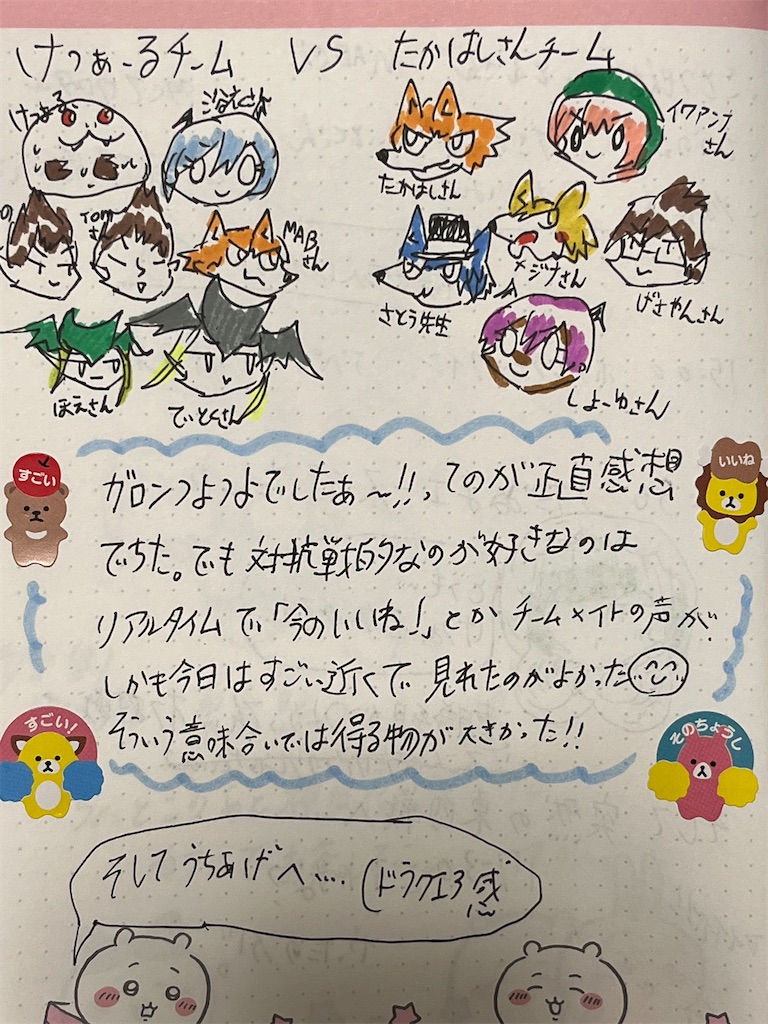 けつぁーるチーム VS たかはしさんチーム
けつぁーる
浴衣さん
イワアンナさん
たかはしさん
Tom さん
MABさん
さとう先生
メジナさん
げさやんさん
ほえさん
でぃとくさん
しょーゆさん
すごい
いいね
ガロンつよつよでしたぁ〜!!ってのが正直感想
でちた。でも対抗戦的なのが好きなのは
リアルタイムで「今のいいね!」とかチームメイトの声が、
しかも今日はすごい近くで見れたのがよかった
そういう意味合いでは得る物が大きかった!!
すごい!
そのちょうし
そしてうちあげへ….(ドラクエ3感